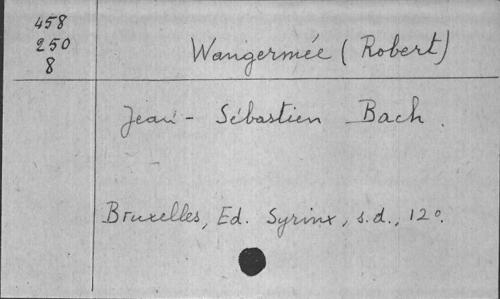 458
250
8
Wangermée (Robert)
Jean-Sébastien Bach.
Bruxelles, Ed. Syrinx, s.d., 12°.